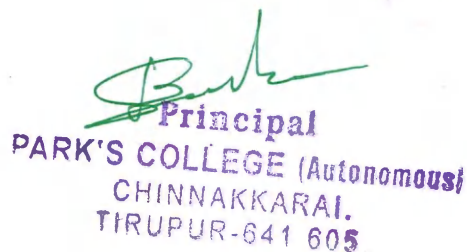 Principal
PARK'S COLLEGE (Autonomous)
CHINNAKKARAI.
TIRUPUR-641 605